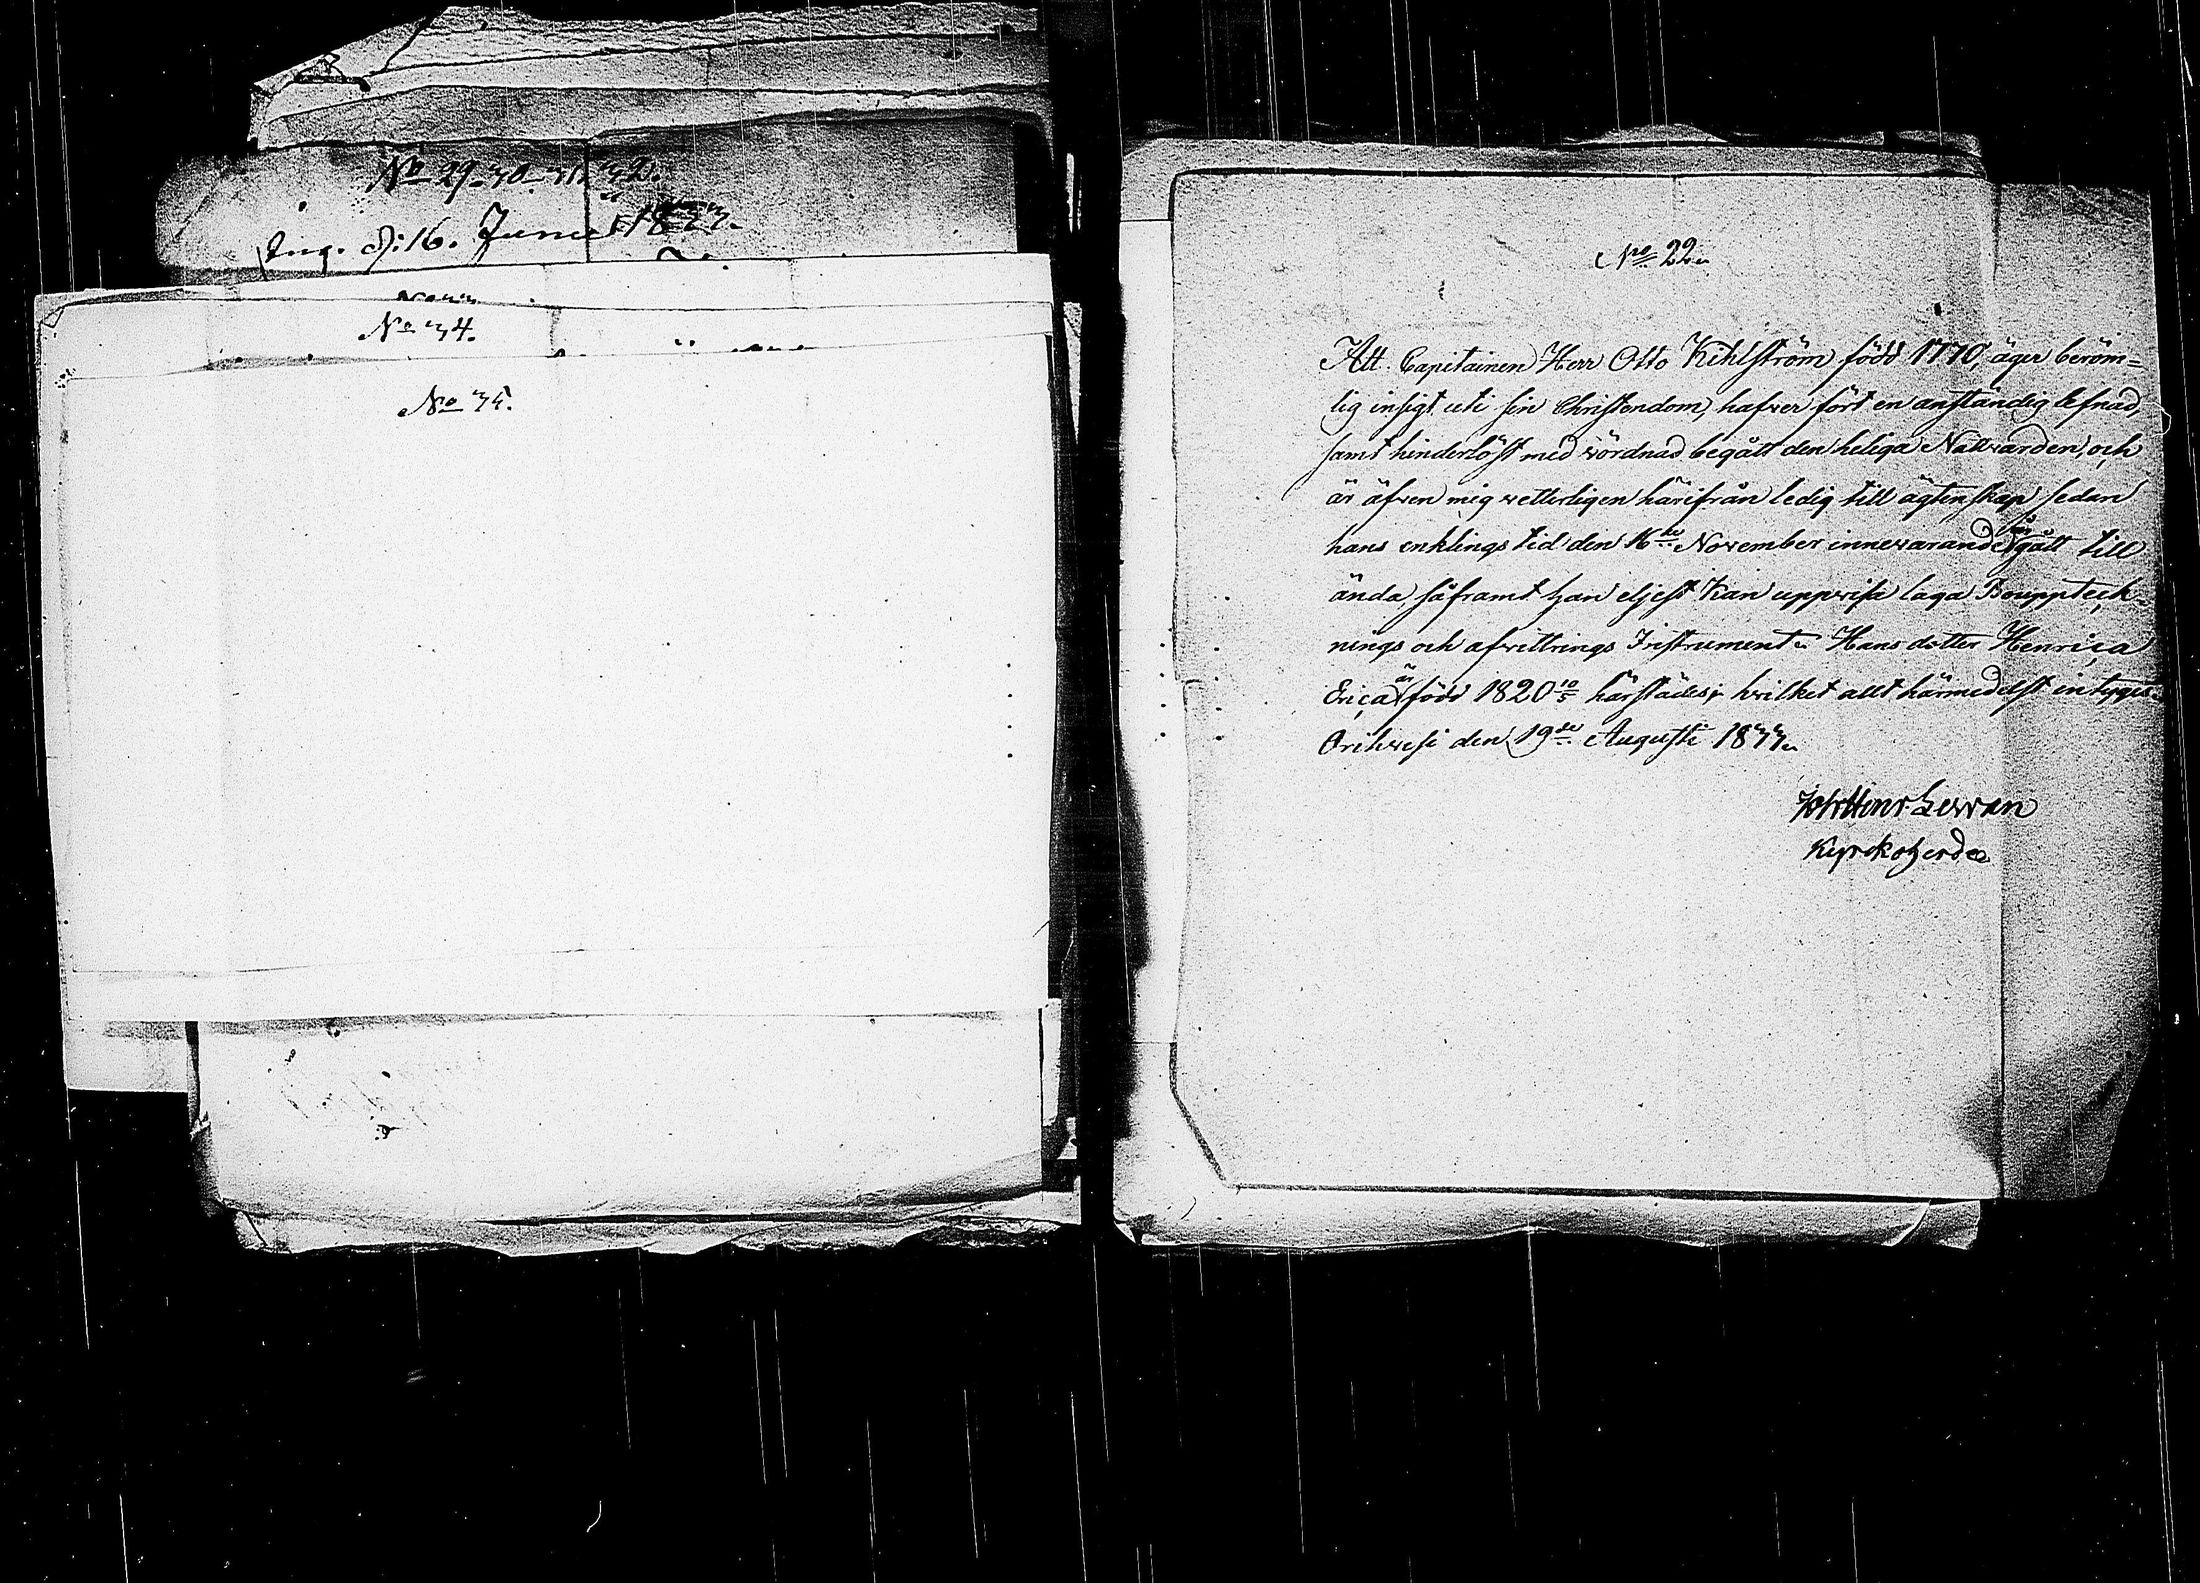 No 29-30-31.32.
Ing. d: 16. Junii 1833.
No 34.
No 35.
No 22.
Att Capitainen Herr Otto Kihlström född 1770, äger beröm=
lig insigt uti sin Christendom, hafver fört en anständig lefnad,
samt hinderlöst med vördnad begått den heliga Nattvarden, och
är äfven mig vetterligen härifrån ledig till ägtenskap sedan
hans enklings tid den 16de November innevarande år gått till
ända, såframt han eljest kan uppvisa laga Bouppteck=
nings och afvittrings Instrument. Hans dotter Henrica
Erica är född 1820 10/5 härstädes; hvilket allt härmedelst intygas.
Orihvesi den 19de Augusti 1833.
Joh Henr
Kyrkoherde